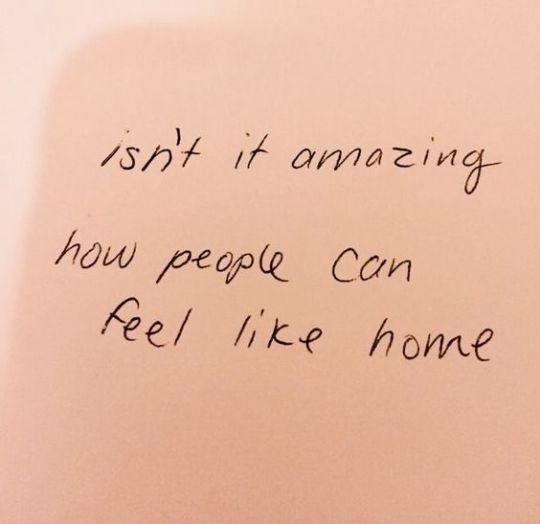 isn't it amazing
how people can
feel like home